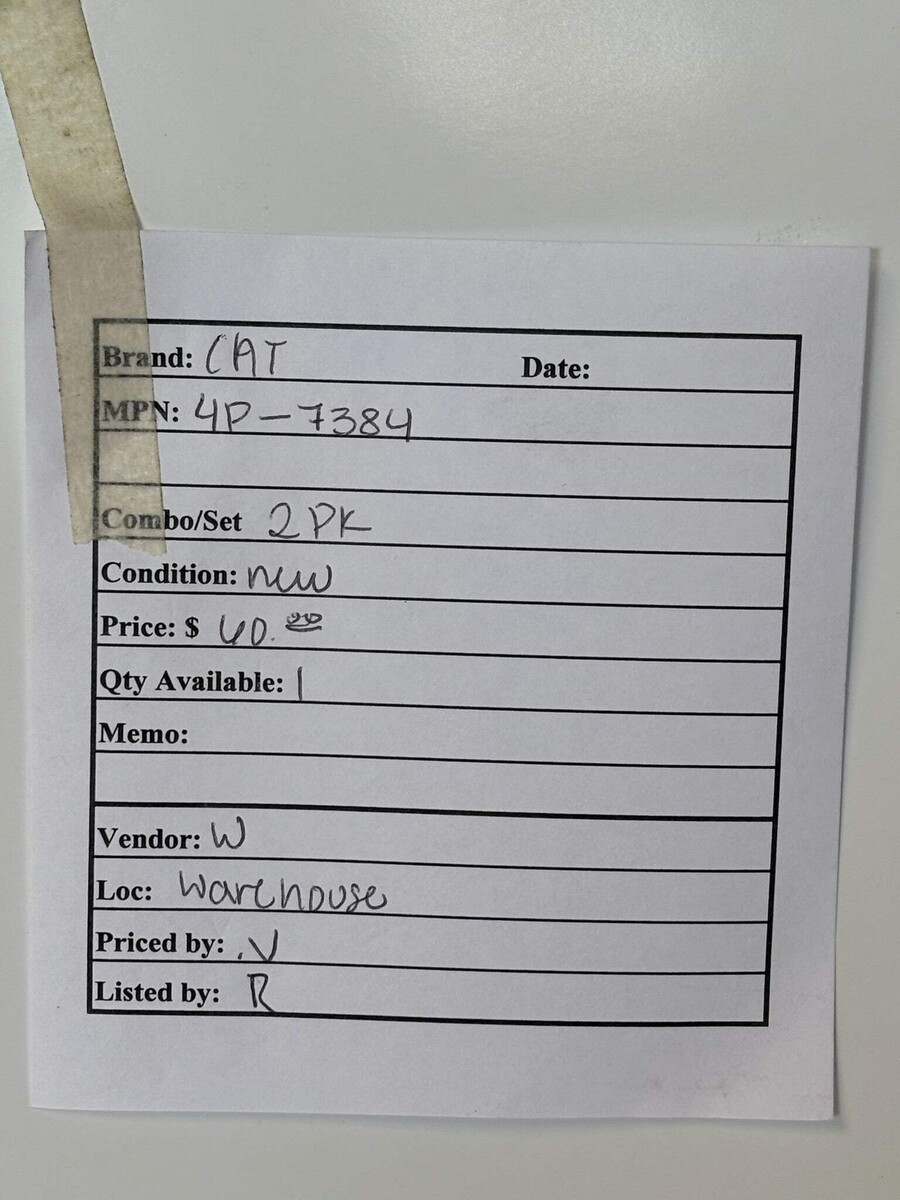 Brand: CAT Date:
MPN: 4P-7384
Combo/Set 2PK
Condition: new
Price: $ 60.00
Qty Available: 1
Memo:
Vendor: W
Loc: Warehouse
Priced by: .V
Listed by: R